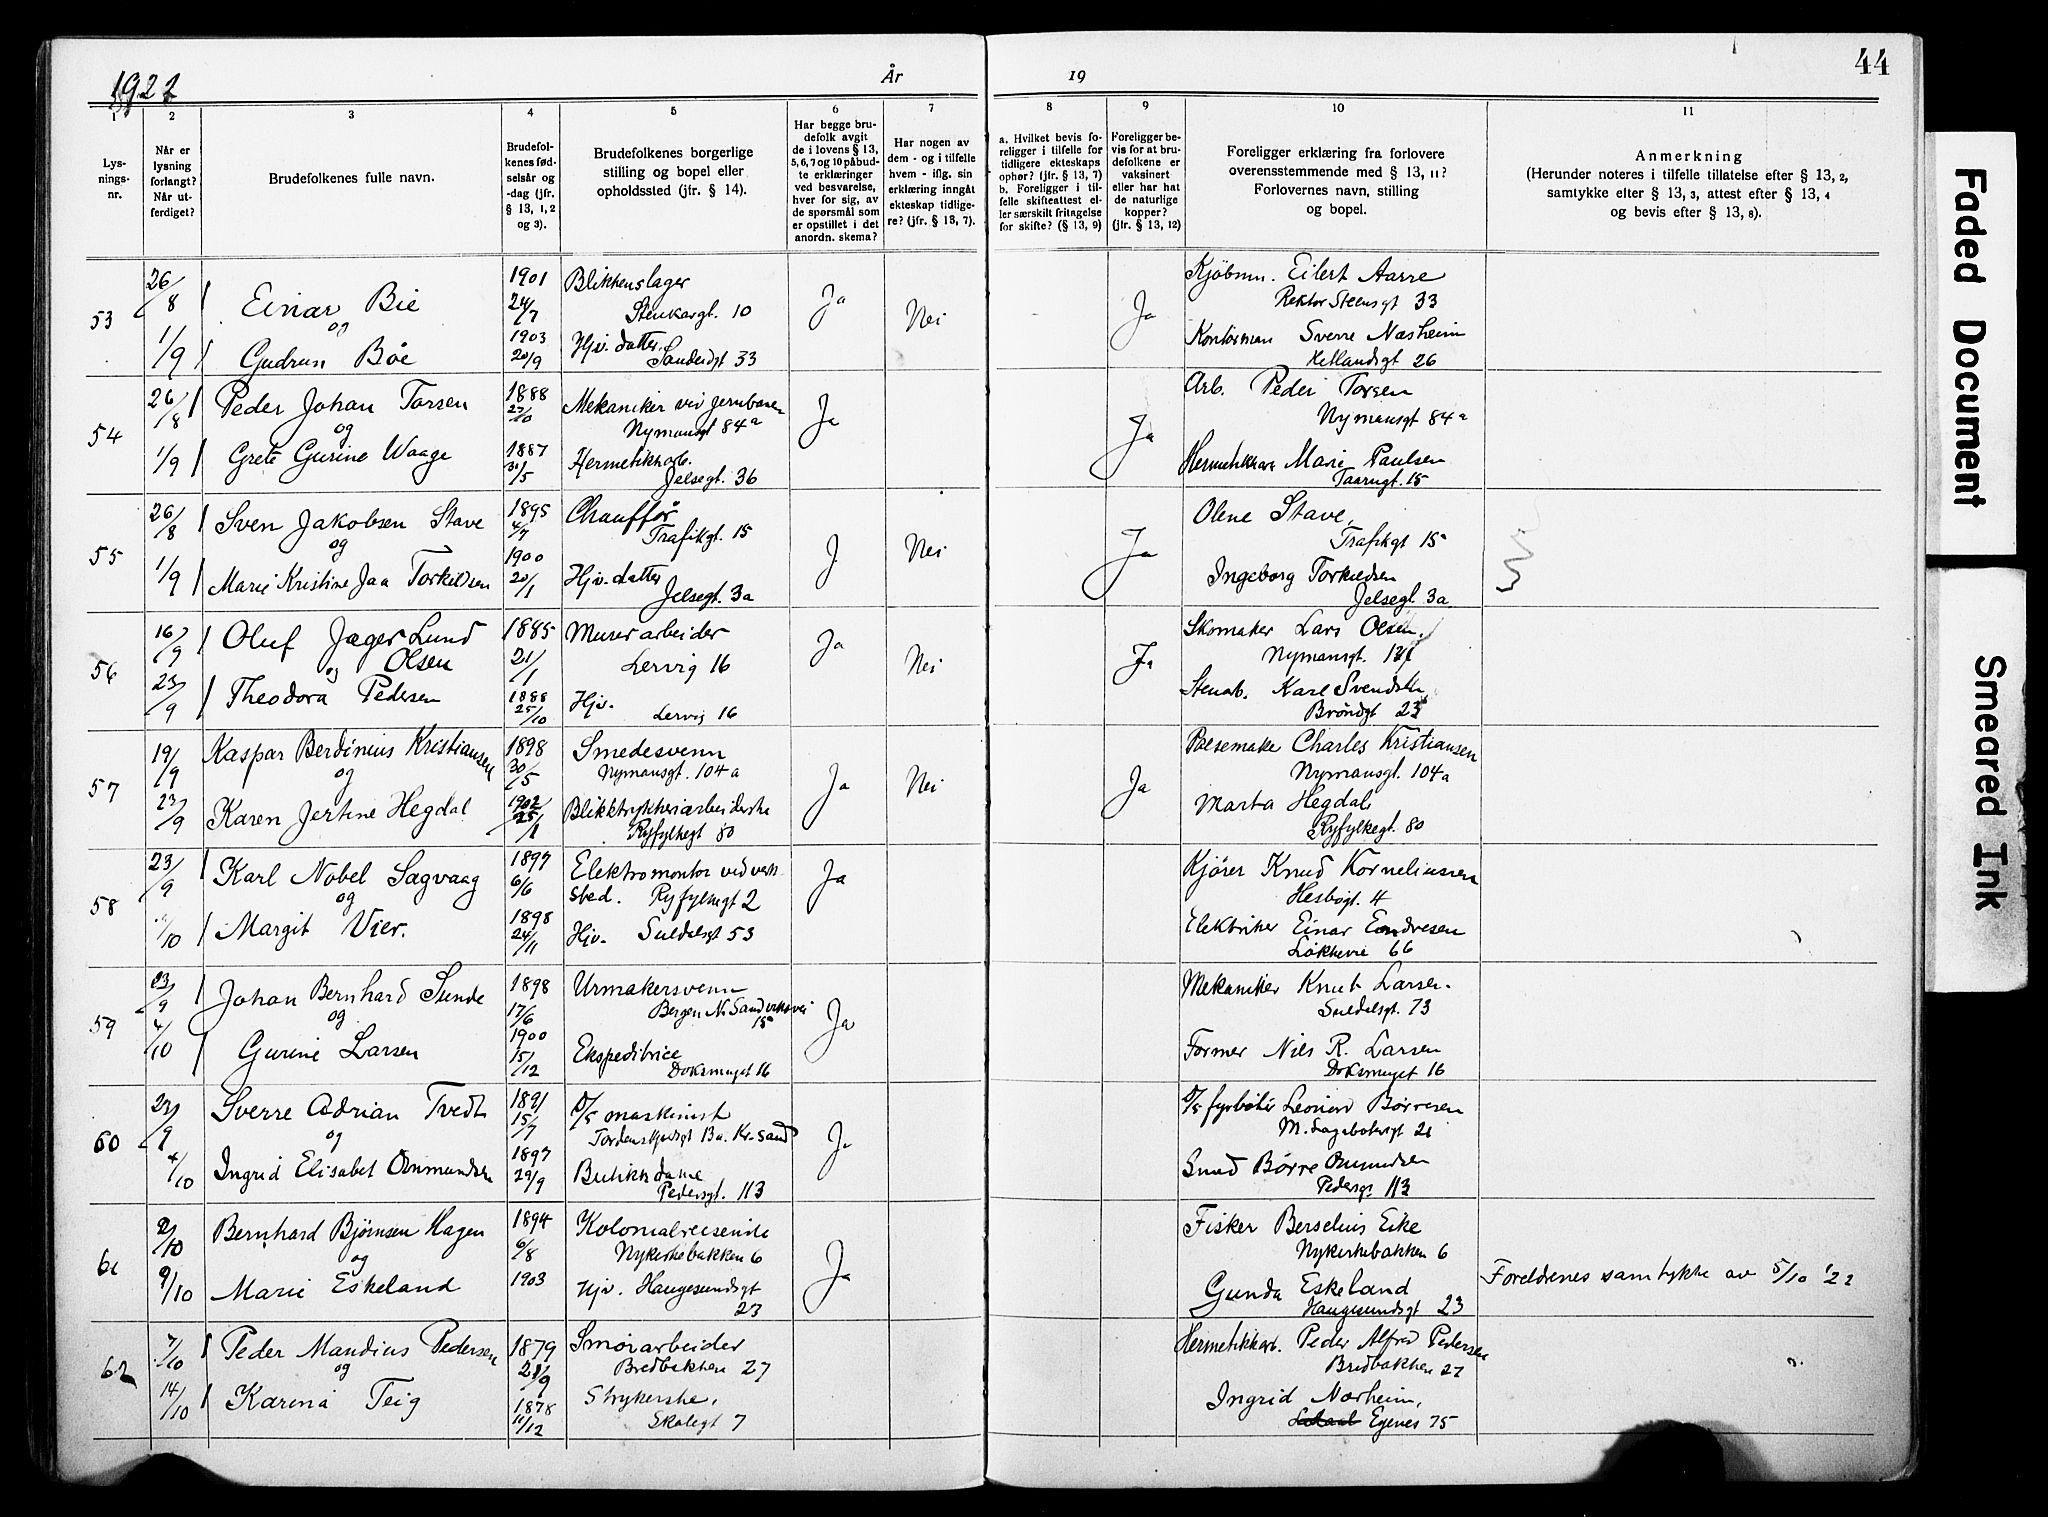 1922
År
19
44
1
2
3
4
5
6
7
8
9
10
11
Lysningsnr.
Når er lysning forlangt? Når utferdiget?
Brudefolkenes fulle navn.
Brudefolkenes fødselsår og -dag (jfr. § 13, 1, 2 og 3).
Brudefolkenes borgerlige stilling og bopel eller opholdssted (jfr. § 14).
Har begge brudefolk avgit de i lovens § 13, 5, 6, 7 og 10 påbudte erklæringer ved besvarelse, hver for sig, av de spørsmål som er opstillet i det anordn. skema?
Har nogen av dem - og i tilfelle hvem - iflg. sin erklæring inngått ekteskap tidligere? (jfr. § 13, 7).
a. Hvilket bevis foreligger i tilfelle for tidligere ekteskaps ophør? (jfr. § 13, 7)
b. Foreligger i tilfelle skifteattest eller særskilt fritagelse for skifte? (§ 13, 9)
Foreligger bevis for at brudefolkene er vaksinert eller har hat de naturlige kopper? (jfr. § 13, 12)
Foreligger erklæring fra forlovere overensstemmende med § 13, 11? Forlovernes navn, stilling og bopel.
Anmerkning
(Herunder noteres i tilfelle tillatelse efter § 13, 2, samtykke efter § 13, 3, attest efter § 13, 4 og bevis efter § 13, 8).
53
26/8
1/9
Einar Bie
og
Gudrun Bøe
1901
24/7
1903
20/9
Blikkenslager
Stenkargt. 10
Hjv. datter
33
Ja
Nei
Ja
Kjøbmn. Eilert Aarre
Rektor Steensgt 33
Kontorman Sverre Næsheim
Hetlandsgt 26
54
26/8
1/9
Peder Johan Torsen
og
Grete Gurine Waage
1888
27/10
1887
31/5
Mekaniker ved jernbanen
Nymansgt 84a
Hermetikkarb.
Jelsegt. 36
Ja
Ja
Arb. Peder Torsen
Nymansgt 84a
Marie Paulsen
15
55
26/8
1/9
Sven Jakobsen Stave
og
Marie Kristine Jaa Torkeldsen
1895
4/7
1900
20/1
Chauffør
Trafikgt. 15
Hjv. datter
Jelsegt. 3a
J
Nei
Ja
Olene Stave,
Trafikgt 15
Ingeborg Torkeldsen
Jelsegt. 3a
56
16/9
23/9
Oluf Jæger Lund
og Olsen
Theodora Pedersen
1885
21/1
1888
25/10
Murerarbeider
Lervig 16
Hjv.
Lervig 16
Ja
Nei
Ja
Skomaker Lars Olsen.
Nymansgt.
Stenarb. Karl Svendsen
Brøndgt 23
57
19/9
23/9
Kaspar Berdinius Kristiansen
og
Karen Jertine Hegdal
1898
30/5
1902
25/1
Smedesvenn
Nymansgt. 104a
Blikktrykkeriarbeiderske
Ryfylkegt 80
Ja
Nei
Ja
Charles Kristiansen
Nymansgt. 104a
Marta Hegdal
Ryfylkegt. 80
58
23/9
/10
Karl Nobel Sagvaag
og
Margit Vier.
1897
6/6
1898
24/11
Elektromontør ved verk
sted. Ryfylkegt 2
Hjv. Suldalsgt 53
Ja
Kjører Knud Korneliussen
Hesbygt. 4
Elektriker Einar Endresen
Løkkevei 66
59
23/9
4/10
Johan Bernhard Sunde
og
Gurine Larsen
1898
17/6
1900
15/12
Urmakersvenn
Bergen N. Sandviksvei
15
Ekspeditrice
16
Ja
Mekaniker Knut Larsen.
Suldalsgt. 73
Former Nils R. Larsen
16
60
23/9
4/10
Sverre Adrian Tvedt
og
Ingrid Elisabet Omundsen
1891
15/7
1897
29/9
D/S maskinist
Tordenskjoldsgt 13a. Kr.sand
Butikkdame
Pedersgt. 113
Ja
D/S fyrbøter Børresen
21
Smed Børre Omundsen
Pedersgt 113
61
2/10
9/10
Bernhard Bjørnsen Hagen
og
Marie Eskeland
1894
6/8
1903
Kolonialreisende
Nykirkebakken 6
Hjv. Haugesundsgt
23
Ja
Fisker Berselius Eike
Nykirkebakken 6
Gunda Eskeland
Haugesundsgt 23
Foreldrenes samtykke av 5/10 '22
62
7/10
14/10
Peder Mandius Pedersen
og
Karina Teig
1879
21/9
1878
11/12
Smørarbeider
Bredbakken 27
Strykerske,
Skolegt 7
Hermetikkarb. Peder Alfred Pedersen
Bredbakken 27
Ingrid Nærheim,
Egenes 75
Faded Document
Smeared Ink